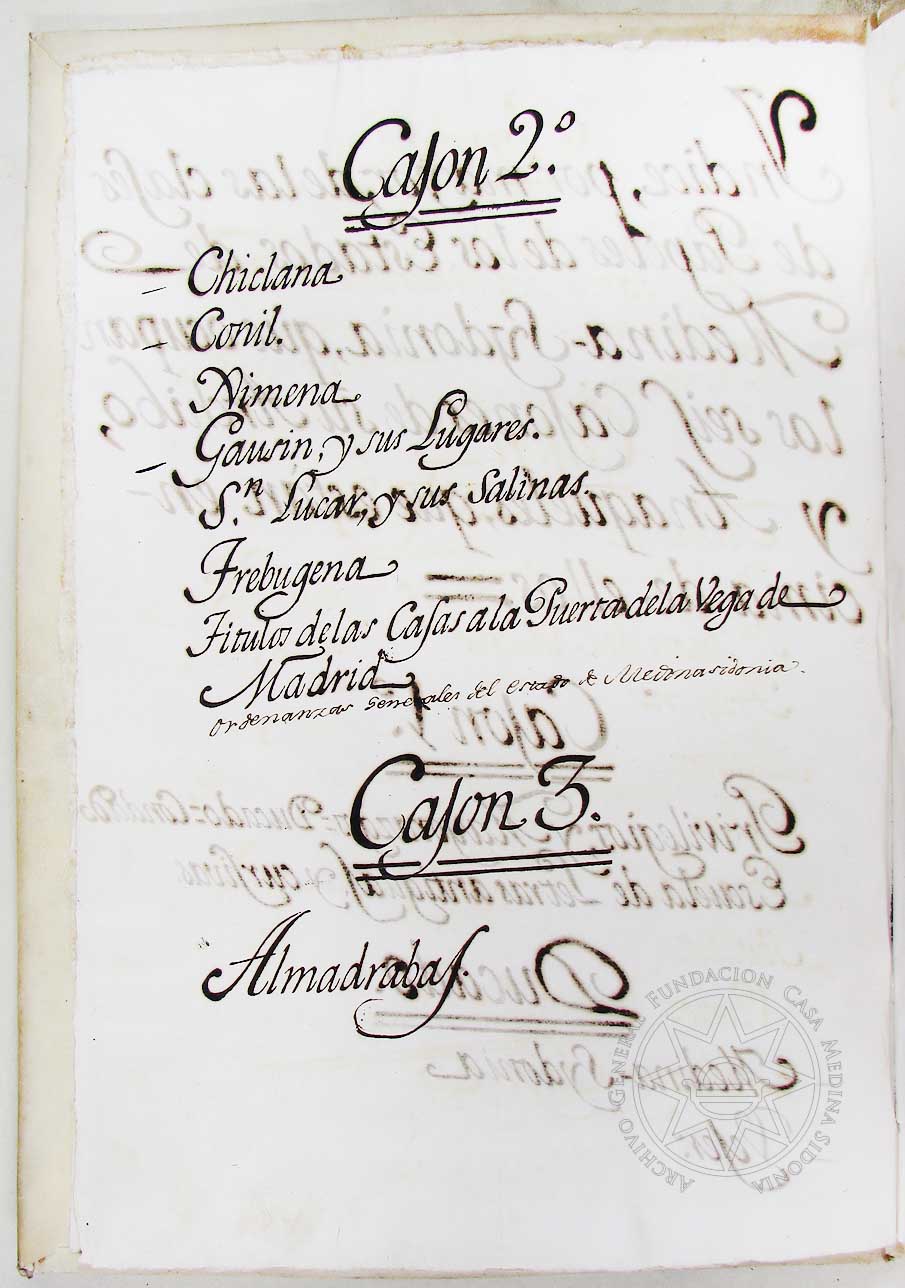 Cajon 2.º
Chiclana
Conil.
Ximena
Gausin, y sus Lugares.
S.n Lucar, y sus Salinas.
Trebugena
Titulos de las Casas a la Puerta de la Vega de
Madrid
Ordenanzas Generales del Estado de Medinasidonia.
Cajon 3.
Almadrabas.
ARCHIVO GENERAL FUNDACION CASA MEDINA SIDONIA